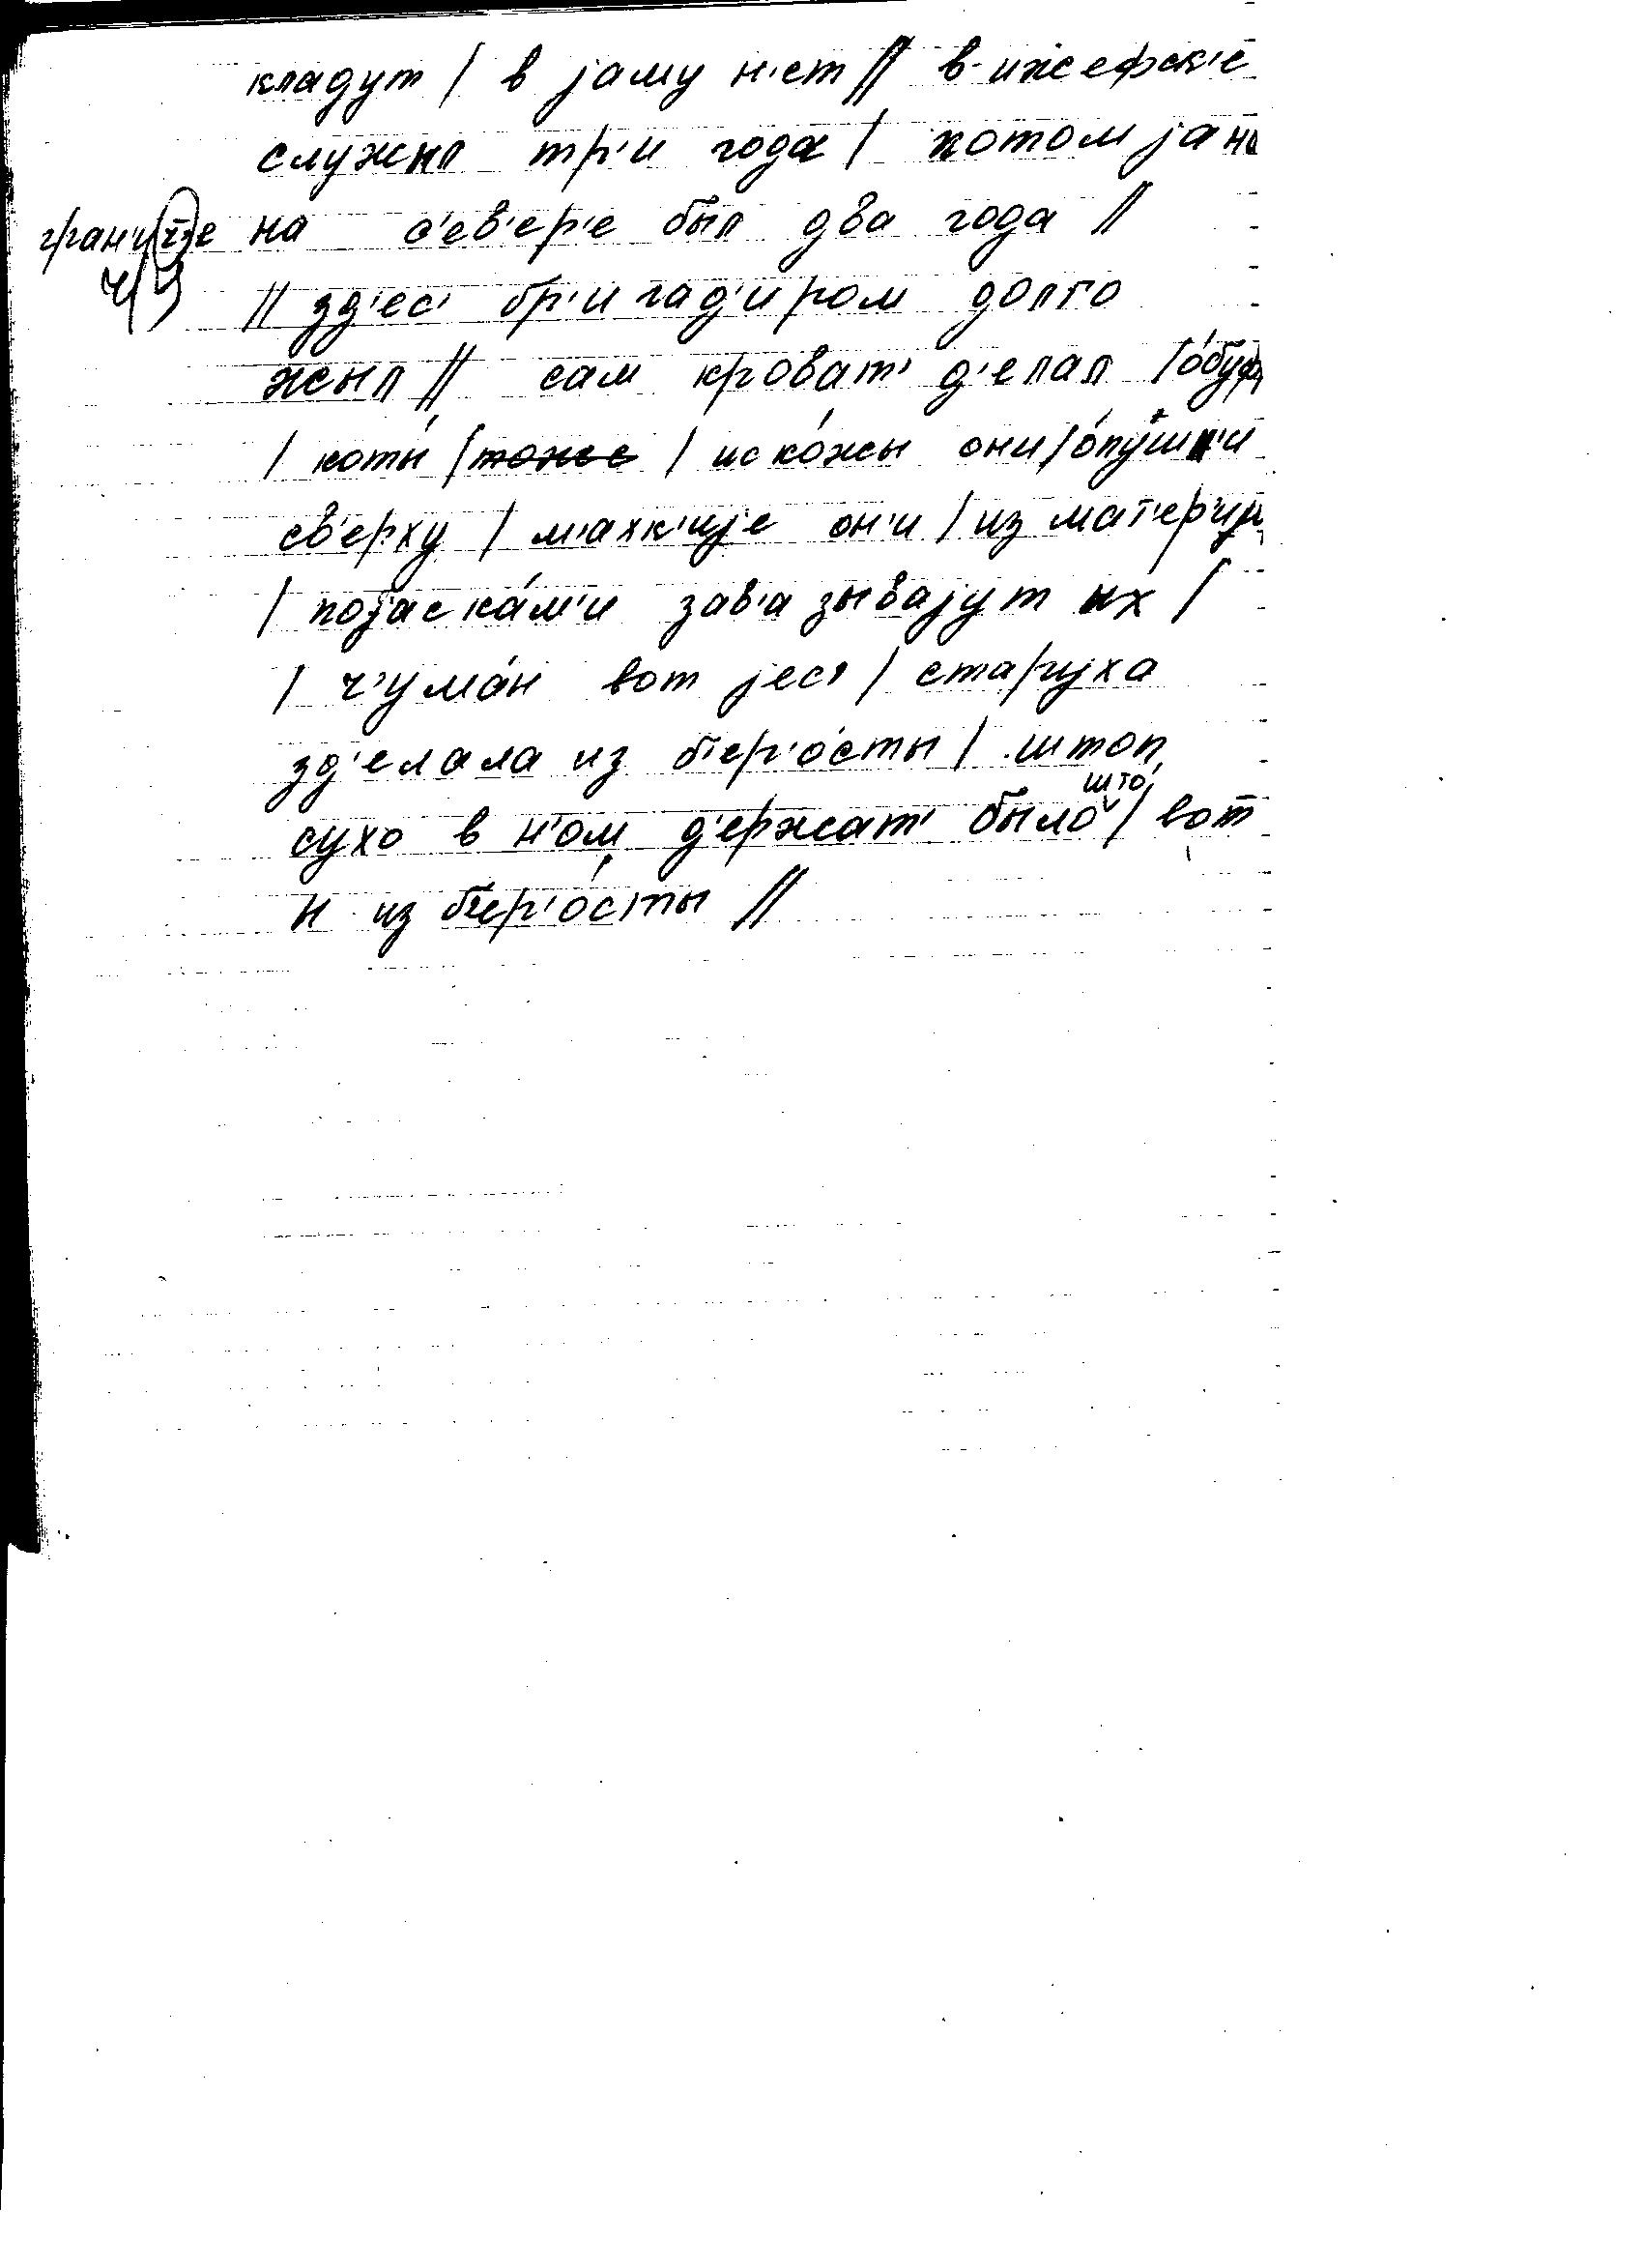 кладут / в јаму н'ет // в ижефск'е
служил тр'и года / потом ја на
гран'ице на с'ев'ер'е был два года //
// зд'ес' бр'игад'иром долго
жыл // сам кроват' д'елал / о́був
/ коты́ / ис ко́жы они / о́пу́шк'и
св'ерху / м'ахк'ије он'и / из мат'ер'ии
/ појаска́м'и зав'азывајут их /
/ ч'ума́н вот јес' / старуха
зд'елала из б'ер'о́сты / штоп
што
сухо в н'ом д'ержат' было / вот
и из б'ер'о́сты //